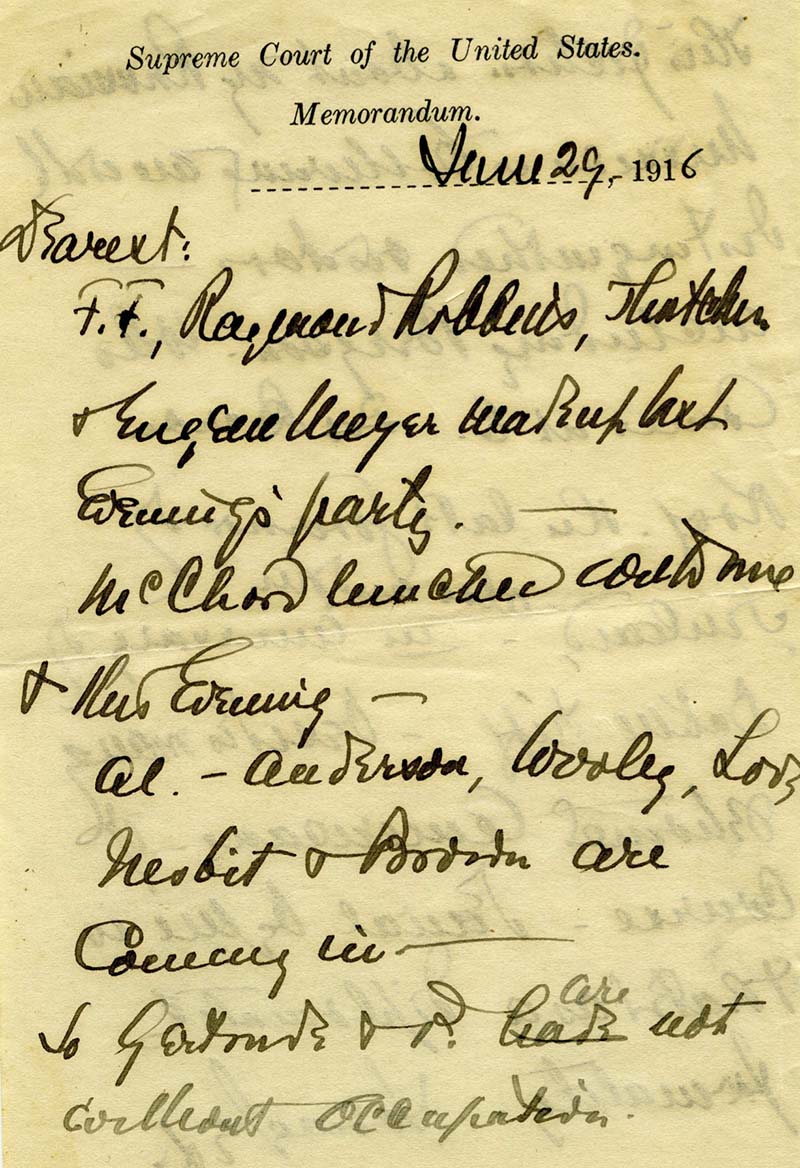 Supreme Court of the United States.
Memorandum.
June 29, 1916
Dearest:
F.F., Raymond Robbins, Thatcher
& Eugene Meyer made up last
Evening's party. —
McChord lunched with me
& this Evening —
Al. - Anderson, Wooley, Lord
Nesbit & Brown are
Coming in —
So Gertrude & P. are not
without occupation.